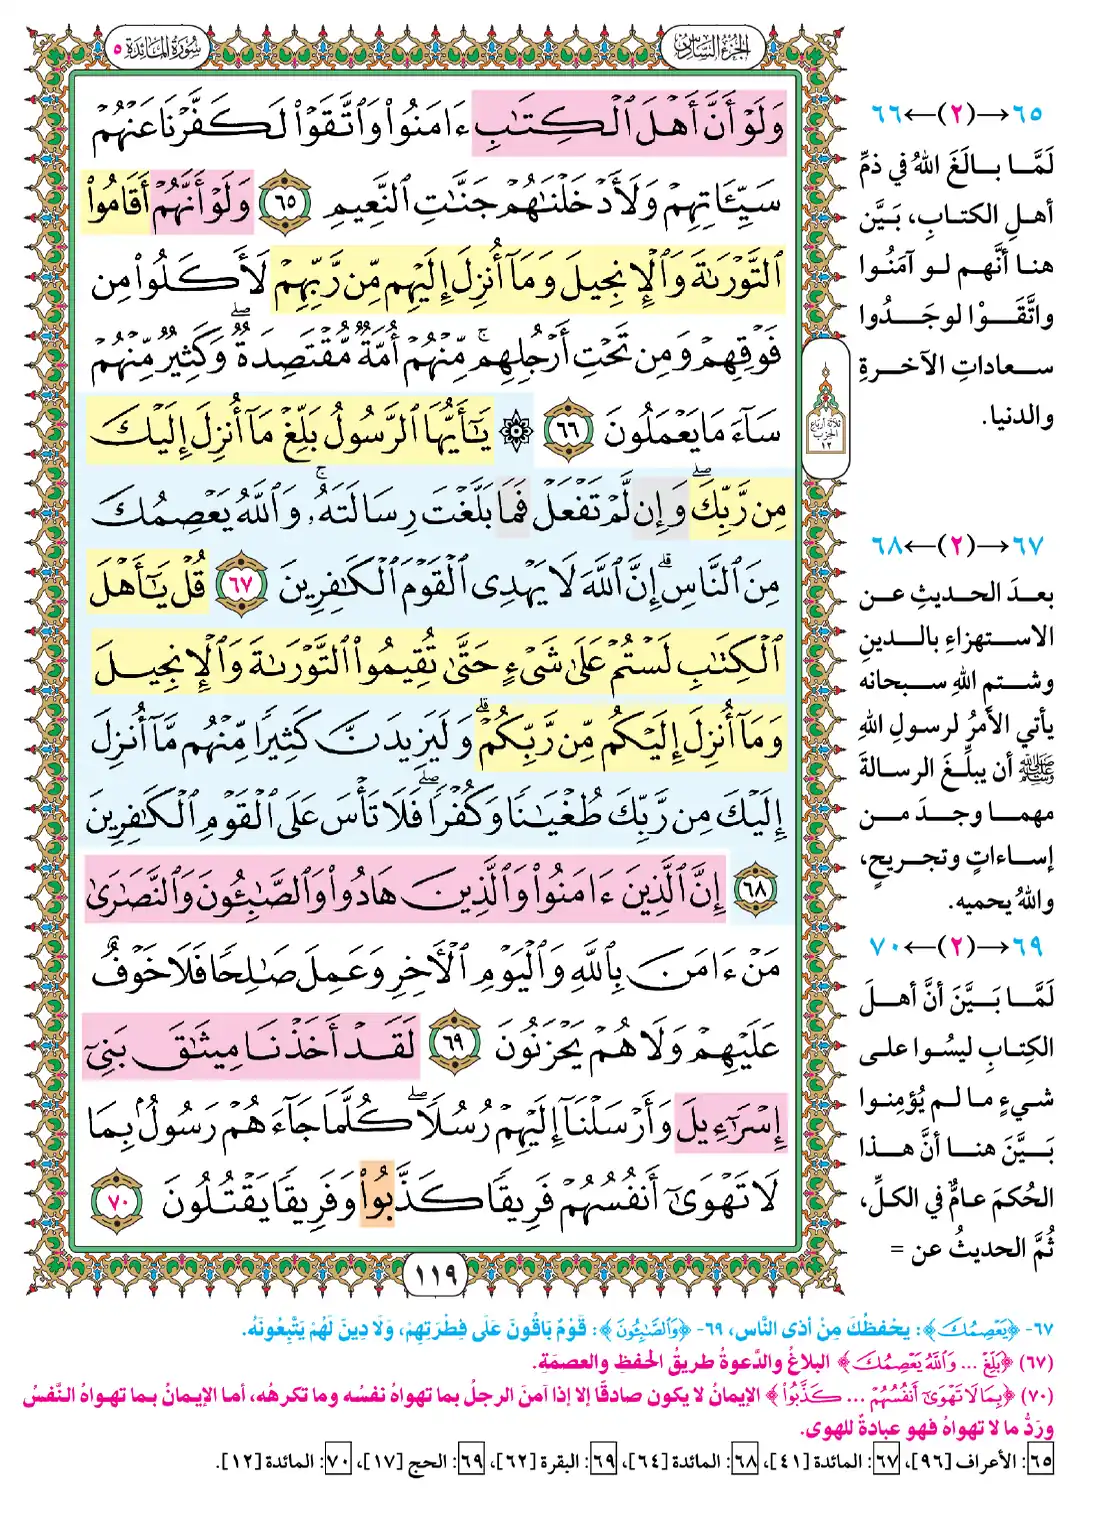 الجزء السادس
سورة المائدة ٥
وَلَوْ أَنَّ أَهْلَ ٱلْكِتَٰبِ ءَامَنُوا۟ وَٱتَّقَوْا۟ لَكَفَّرْنَا عَنْهُمْ
سَيِّـَٔاتِهِمْ وَلَأَدْخَلْنَٰهُمْ جَنَّٰتِ ٱلنَّعِيمِ ٦٥ وَلَوْ أَنَّهُمْ أَقَامُوا۟
ٱلتَّوْرَىٰةَ وَٱلْإِنجِيلَ وَمَآ أُنزِلَ إِلَيْهِم مِّن رَّبِّهِمْ لَأَكَلُوا۟ مِن
فَوْقِهِمْ وَمِن تَحْتِ أَرْجُلِهِم ۚ مِّنْهُمْ أُمَّةٌ مُّقْتَصِدَةٌ ۖ وَكَثِيرٌ مِّنْهُمْ
سَآءَ مَا يَعْمَلُونَ ٦٦ ۞ يَٰٓأَيُّهَا ٱلرَّسُولُ بَلِّغْ مَآ أُنزِلَ إِلَيْكَ
مِن رَّبِّكَ ۖ وَإِن لَّمْ تَفْعَلْ فَمَا بَلَّغْتَ رِسَالَتَهُۥ ۚ وَٱللَّهُ يَعْصِمُكَ
مِنَ ٱلنَّاسِ ۗ إِنَّ ٱللَّهَ لَا يَهْدِى ٱلْقَوْمَ ٱلْكَٰفِرِينَ ٦٧ قُلْ يَٰٓأَهْلَ
ٱلْكِتَٰبِ لَسْتُمْ عَلَىٰ شَىْءٍ حَتَّىٰ تُقِيمُوا۟ ٱلتَّوْرَىٰةَ وَٱلْإِنجِيلَ
وَمَآ أُنزِلَ إِلَيْكُم مِّن رَّبِّكُمْ ۗ وَلَيَزِيدَنَّ كَثِيرًا مِّنْهُم مَّآ أُنزِلَ
إِلَيْكَ مِن رَّبِّكَ طُغْيَٰنًا وَكُفْرًا ۖ فَلَا تَأْسَ عَلَى ٱلْقَوْمِ ٱلْكَٰفِرِينَ
٦٨ إِنَّ ٱلَّذِينَ ءَامَنُوا۟ وَٱلَّذِينَ هَادُوا۟ وَٱلصَّٰبِـُٔونَ وَٱلنَّصَٰرَىٰ
مَنْ ءَامَنَ بِٱللَّهِ وَٱلْيَوْمِ ٱلْءَاخِرِ وَعَمِلَ صَٰلِحًا فَلَا خَوْفٌ
عَلَيْهِمْ وَلَا هُمْ يَحْزَنُونَ ٦٩ لَقَدْ أَخَذْنَا مِيثَٰقَ بَنِىٓ
إِسْرَٰٓءِيلَ وَأَرْسَلْنَآ إِلَيْهِمْ رُسُلًا ۖ كُلَّمَا جَآءَهُمْ رَسُولٌۢ بِمَا
لَا تَهْوَىٰٓ أَنفُسُهُمْ فَرِيقًا كَذَّبُوا۟ وَفَرِيقًا يَقْتُلُونَ ٧٠
١١٩
ثلاثة أرباع
الحزب
١٢
٦٥→(٢)←٦٦
لَمَّا بالَغَ اللهُ في ذمِّ
أهلِ الكتابِ، بَيَّن
هنا أنَّهم لو آمَنُوا
واتَّقَوْا لوجَدُوا
سعاداتِ الآخرةِ
والدنيا.
٦٧→(٢)←٦٨
بعدَ الحديثِ عن
الاستهزاءِ بالدينِ
وشتمِ اللهِ سبحانه
يأتي الأمرُ لرسولِ اللهِ
ﷺ أن يبلِّغَ الرسالةَ
مهما وجدَ من
إساءاتٍ وتجريحٍ،
واللهُ يحميه.
٦٩→(٢)←٧٠
لَمَّا بَيَّنَ أنَّ أهلَ
الكِتابِ ليسُوا على
شيءٍ ما لم يُؤمِنُوا
بَيَّنَ هنا أنَّ هذا
الحُكمَ عامٌّ في الكلِّ،
ثُمَّ الحديثُ عن =
٦٧- ﴿يَعْصِمُكَ﴾: يحْفظُكَ مِنْ أذى النَّاس، ٦٩- ﴿وَالصَّٰبِـُٔونَ﴾: قَوْمٌ بَاقُونَ عَلَى فِطْرَتِهِمْ، وَلَا دِينَ لَهُمْ يَتَّبِعُونَهُ.
(٦٧) ﴿بَلِّغْ ... وَٱللَّهُ يَعْصِمُكَ﴾ البلاغُ والدَّعوةُ طريقُ الحفظِ والعصمَة.
(٧٠) ﴿بِمَا لَا تَهْوَىٰٓ أَنفُسُهُمْ ... كَذَّبُوا۟﴾ الإيمانُ لا يكون صادقًا إلا إذا آمنَ الرجلُ بما تهواهُ نفسُه وما تكرهُه، أما الإيمانُ بما تهواهُ النَّفسُ
وردُّ ما لا تهواهُ فهو عبادةٌ للهوى.
٦٥: الأعراف [٩٦]، ٦٧: المائدة [٤١]، ٦٨: المائدة [٦٤]، ٦٩: البقرة [٦٢]، ٦٩: الحج [١٧]، ٧٠: المائدة [١٢].